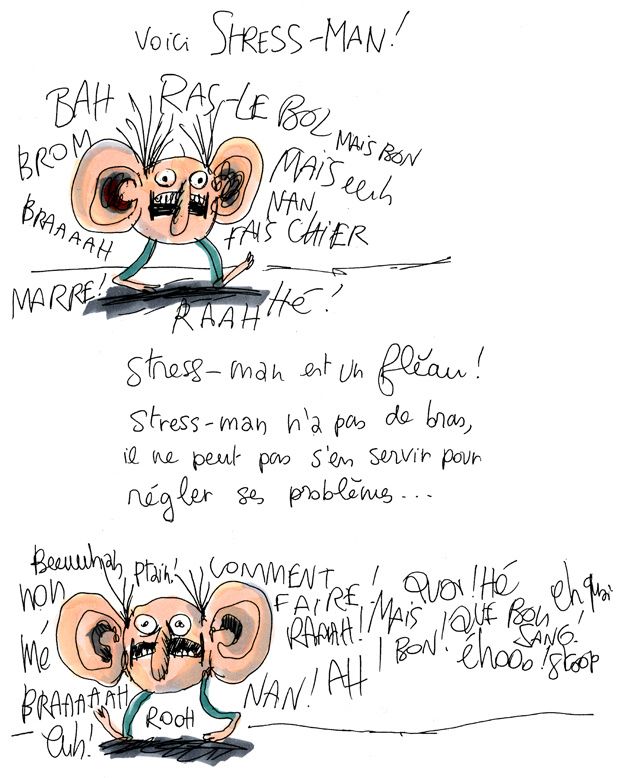 Voici STRESS-MAN!
BAH RAS-LE BOL
BROM
MAIS BON
MAIS euh
NAN
BRAAAAH
FAIS CHIER
MARRE!
RAAH Hé!
Stress-man est un fléau!
Stress-man n'a pas de bras,
il ne peut pas s'en servir pour
régler ses problèmes...
Beeuuhhah
Ptain!
COMMENT
FAIRE!
QUOI! Hé
eh quoi
non
RAAAH! MAIS
QUE BON
SANG!
BON!
éhooo! Stoop
Mé
BRAAAAAH
ROOH
NAN! AH!
Euh!